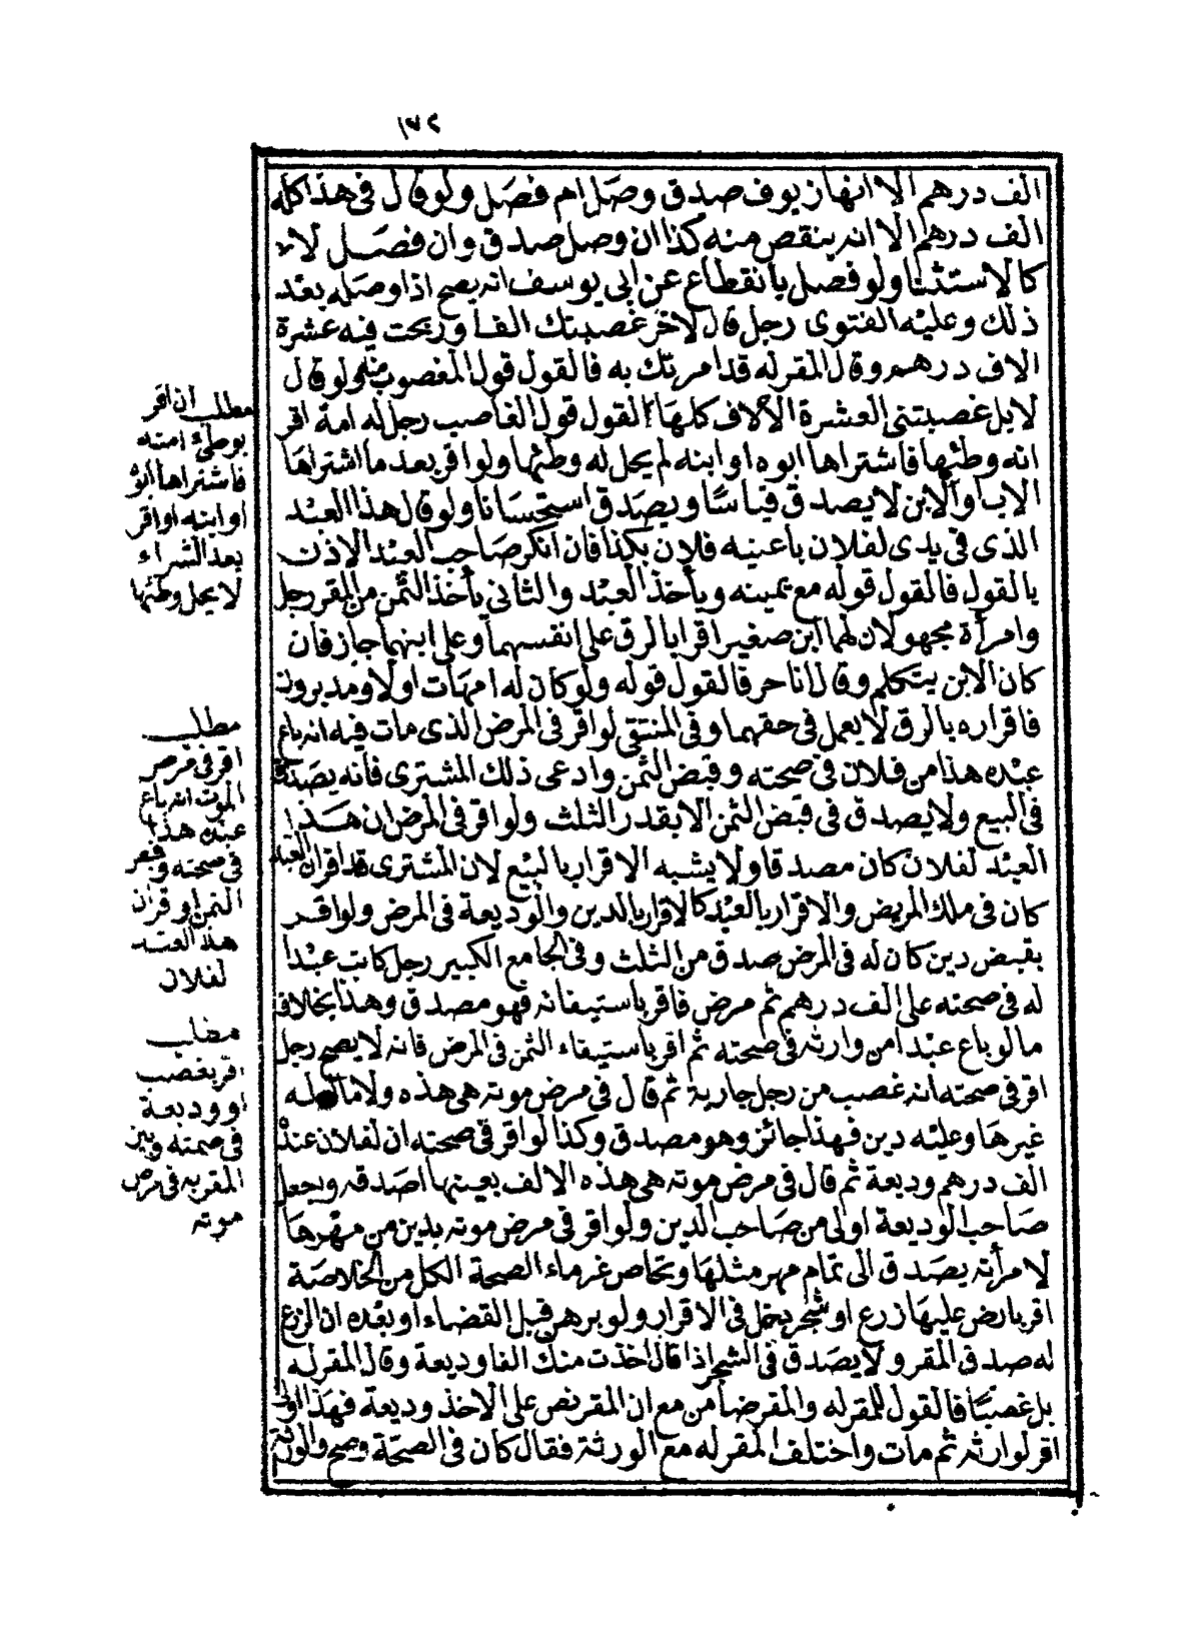 ١٧٢
الف درهم الا انها زيوف صدق وصل ام فصل ولو قال في هذا كله
الف درهم الا انه ينقص منه كذا ان وصل صدق وان فصل لا
كالاستثنا ولو فصل بانقطاع عن ابي يوسف انه يصح اذا وصله بعد
ذلك وعليه الفتوى رجل قال لاخر غصبتك الفا وربحت فيه عشرة
الاف درهم وقال المقر له قد امرتك به فالقول قول المغصوب منه ولو قال
لا بل غصبتني العشرة الآلاف كلها القول قول الغاصب رجل له امة اقر
انه وطئها فاشتراها ابوه او ابنه لم يحل له وطئها ولو اقر بعد ما اشتراها
الاب والابن لا يصدق قياسا ويصدق استحسانا ولو قال هذا العبد
الذي في يدي لفلان باعنيه فلان بكذا فان انكر صاحب العبد الاذن
بالقول فالقول قوله مع يمينه ويأخذ العبد والثاني يأخذ الثمن من المقر رجل
وامرأة مجهولان لهما ابن صغير اقرا بالرق على انفسهما وعلى ابنهما جاز فان
كان الابن يتكلم وقال انا حر فالقول قوله ولو كان له امهات اولاد ومدبرون
فاقراره بالرق لا يعمل في حقهما وفي المنتقى لو اقر في المرض الذي مات فيه انه باع
عبده هذا من فلان في صحته وقبض الثمن وادعى ذلك المشتري فانه يصدق
في البيع ولا يصدق في قبض الثمن الا بقدر الثلث ولو اقر في المرض ان هذا
العبد لفلان كان مصدقا ولا يشبه الاقرار بالبيع لان المشتري قد اقر ان العبد
كان في ملك المريض والاقرار بالعبد كالاقرار بالدين والوديعة في المرض ولو اقر
بقبض دين كان له في المرض صدق من الثلث وفي الجامع الكبير رجل كاتب عبدا
له في صحته على الف درهم ثم مرض فاقر باستيفائه فهو مصدق وهذا بخلاف
ما لو باع عبدا من وارثه في صحته ثم اقر باستيفاء الثمن في المرض فانه لا يصح رجل
اقر في صحته انه غصب من رجل جارية ثم قال في مرض موته هي هذه ولا مال له
غيرها وعليه دين فهذا جائز وهو مصدق وكذا لو اقر في صحته ان لفلان عنده
الف درهم وديعة ثم قال في مرض موته هي هذه الالف بعينها اصدقه ويجعل
صاحب الوديعة اولى من صاحب الدين ولو اقر في مرض موته بدين من مهرها
لامرأته يصدق الى تمام مهر مثلها وتحاص غرماء الصحة الكل من الخلاصة
اقر بارض عليها زرع او شجر يدخل في الاقرار ولو برهن قبل القضاء او بعده ان الزرع
له صدق المقر ولا يصدق في الشجر اذا قال اخذت منك الفا وديعة وقال المقر له
بل غصبا فالقول للمقر له والمقر ضامن مع ان المقر نص على الاخذ وديعة فهذا اولى
اقر لوارثه ثم مات واختلف المقر له مع الورثة فقال كان في الصحة وصح والورثة
مطلب ان اقر
بوطئ امته
فاشتراها ابوه
او ابنه او اقر
بعد الشراء
لا يحل وطئها
مطلب
اقر في مرض
الموت انه باع
عبده هذا
في صحته وقبض
الثمن او اقر ان
هذا العبد
لفلان
مطلب
اقر بغصب
او وديعة
في صحته وبين
المقر به في مرض
موته